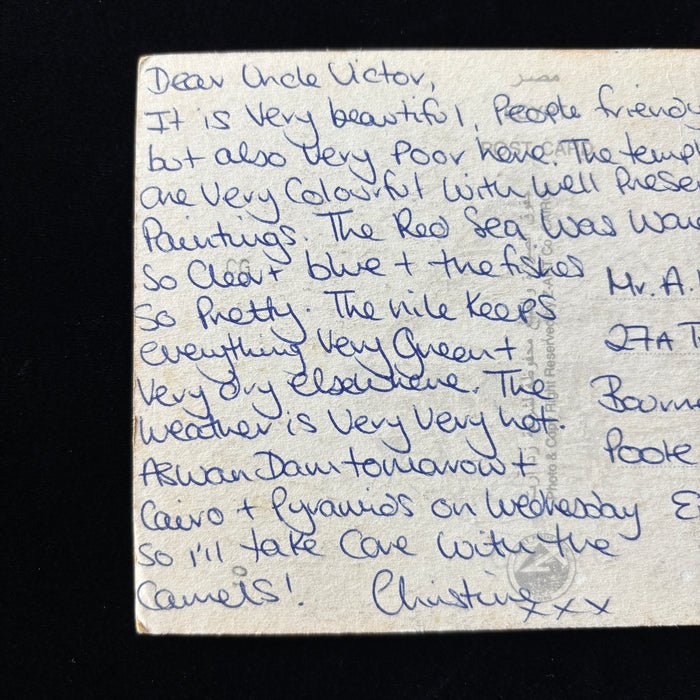 Dear Uncle Victor,
It is very beautiful, People friend
but also very Poor here. The templ
are very Colourful with well Prese
Paintings. The Red Sea was wa
So Clear + blue + the fishes
So Pretty. The nile keeps
everything very Green +
very dry elsewhere. The
weather is very very hot.
Aswan Dam tomorow +
Cairo + Pyramids on Wednesday
So i'll take Care with the
Camels! Christine xxx
Mr. A.
27A T
Bourne
Poole
E
مصر
POST CARD
Photo & Copy Right Reserved